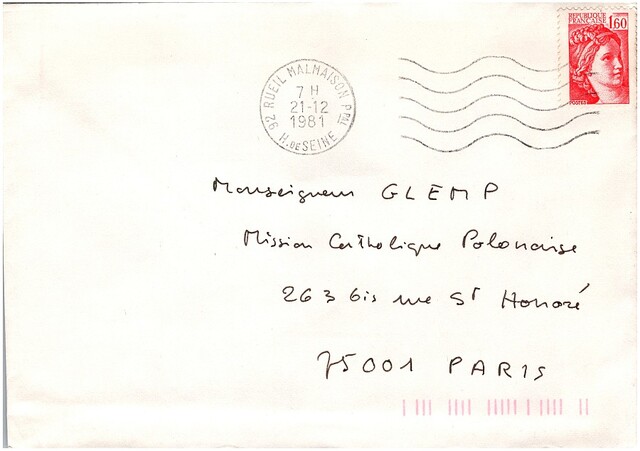 REPUBLIQUE
FRANCAISE
1,60
POSTES
92 RUEIL MALMAISON PPAL
7 H
21-12
1981
H. DE SEINE
Monseigneur GLEMP
Mission Catholique Polonaise
263 bis rue St Honoré
75001 PARIS